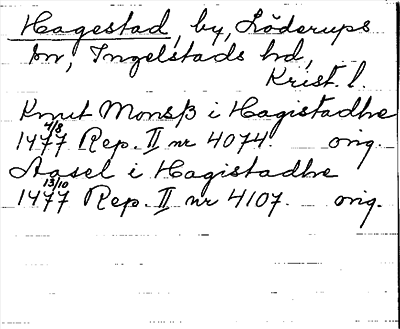 Hagestad, by, Löderups
sn, Ingelstads hd,
Krist. l.
Knut Monsß i Hagistadhe
1477 4/8 Rep. II nr 4074. orig.
Aasel i Hagistadhe
1477 13/10 Rep. II nr 4107. orig.